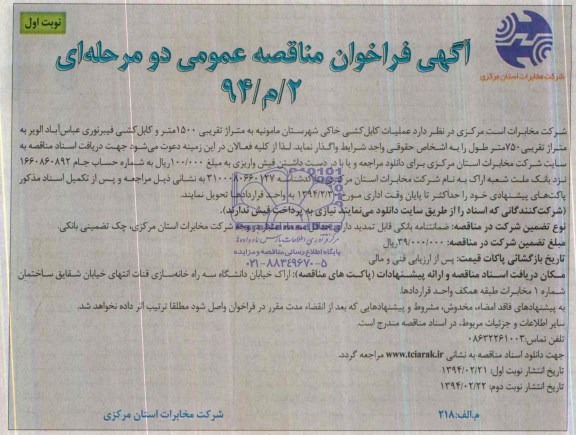 نوبت اول
شرکت مخابرات استان مرکزی
آگهی فراخوان مناقصه عمومی دو مرحله‌ای
۹۴/م/۲
شرکت مخابرات است مرکزی در نظر دارد عملیات کابل کشی خاکی شهرستان مامونیه به متراژ تقریبی ۱۵۰۰متر و کابل‌کشی فیبرنوری عباس‌آباد الویر به
متراژ تقریبی ۷۵۰متر طول را به اشخاص حقوقی واجد شرایط واگذار نماید. لذا از کلیه فعالان در این زمینه دعوت می‌شود جهت دریافت اسناد مناقصه به
سایت شرکت مخابرات استان مرکزی برای دانلود مراجعه و یا با در دست داشتن فیش واریزی به مبلغ ۱۰۰/۰۰۰ ریال به شماره حساب جام ۱۶۶۰۸۶۰۸۹۲
نزد بانک ملت شعبه اراک به نام شرکت مخابرات استان مرکزی به نشانی ذیل مراجعه و پس از تکمیل اسناد مذکور
پاکت‌های پیشنهادی خود را حداکثر تا پایان وقت اداری به واحد قراردادها تحویل نمایند.
(شرکت‌کنندگانی که اسناد را از طریق سایت دانلود می‌نمایند نیازی به پرداخت فیش ندارند).
نوع تضمین شرکت در مناقصه: ضمانتنامه بانکی قابل تمدید دارای شرکت مخابرات استان مرکزی، چک تضمینی بانکی.
مبلغ تضمین شرکت در مناقصه: ۳۹/۰۰۰/۰۰۰ریال
تاریخ بازگشائی پاکات قیمت: پس از ارزیابی فنی و مالی
پایگاه اطلاع رسانی مناقصه و مزایده
۰۲۱-۸۸۳۴۹۶۷۰-۵
مکان دریافت اسناد مناقصه و ارائه پیشنهادات (پاکت های مناقصه): اراک خیابان دانشگاه سه راه خانه‌سازی قنات انتهای خیابان شقایق ساختمان
شماره ۱ مخابرات طبقه همکف واحد قراردادها.
به پیشنهادهای فاقد امضاء، مخدوش، مشروط و پیشنهادهایی که بعد از انقضاء مدت مقرر در فراخوان واصل شود مطلقا ترتیب اثر داده نخواهد شد.
سایر اطلاعات و جزئیات مربوط، در اسناد مناقصه مندرج است.
تلفن تماس: ۰۸۶۳۲۲۶۱۰۰۳
جهت دانلود اسناد مناقصه به نشانی www.tciarak.ir مراجعه گردد.
تاریخ انتشار نوبت اول: ۱۳۹۴/۰۲/۲۱
تاریخ انتشار نوبت دوم: ۱۳۹۴/۰۲/۲۲
م.الف: ۲۱۸
شرکت مخابرات استان مرکزی